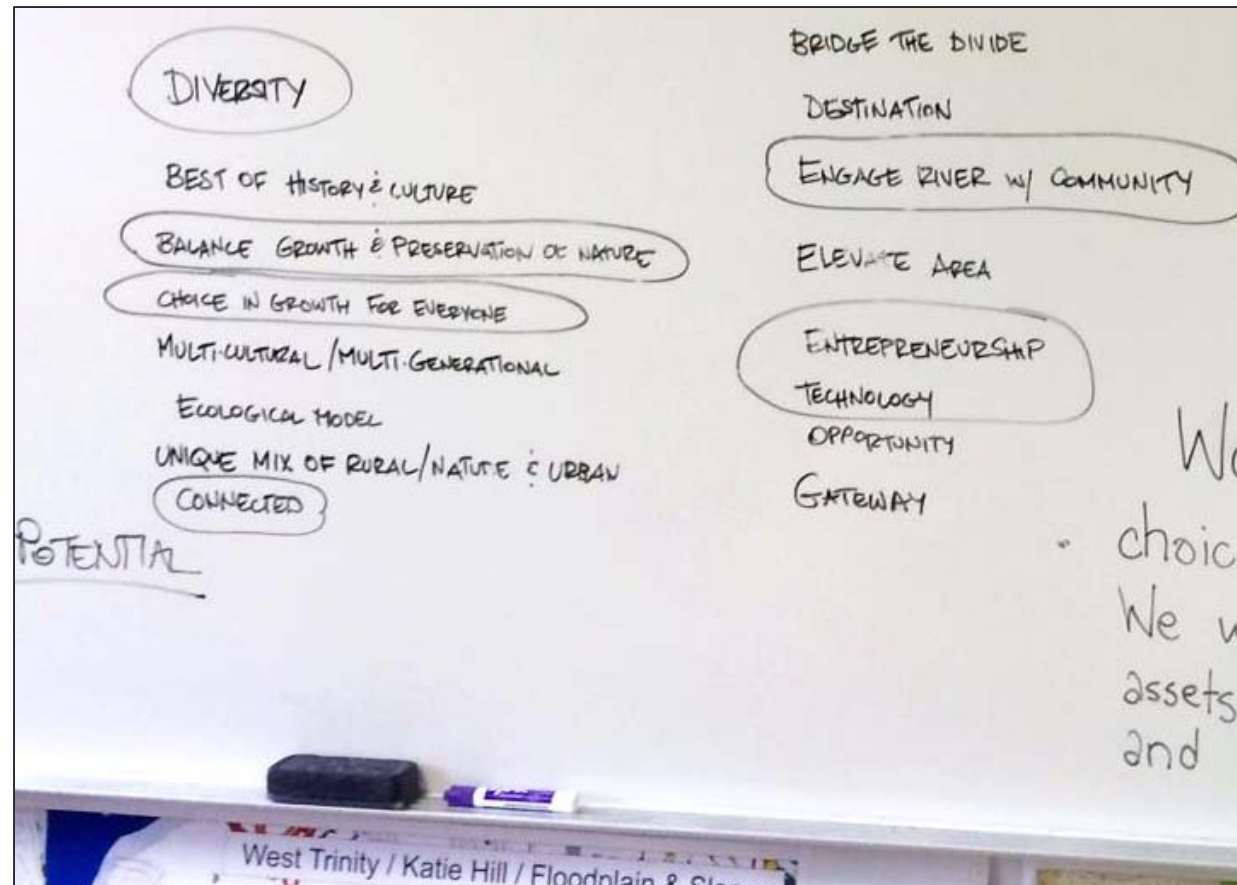 DIVERSITY
BEST OF HISTORY & CULTURE
BALANCE GROWTH & PRESERVATION OF NATURE
CHOICE IN GROWTH FOR EVERYONE
MULTI-CULTURAL / MULTI-GENERATIONAL
ECOLOGICAL MODEL
UNIQUE MIX OF RURAL/NATURE & URBAN
CONNECTED
POTENTIAL
BRIDGE THE DIVIDE
DESTINATION
ENGAGE RIVER W/ COMMUNITY
ELEVATE AREA
ENTREPRENEURSHIP
TECHNOLOGY
OPPORTUNITY
GATEWAY
choic
We w
assets
and
West Trinity / Katie Hill / Floodplain &